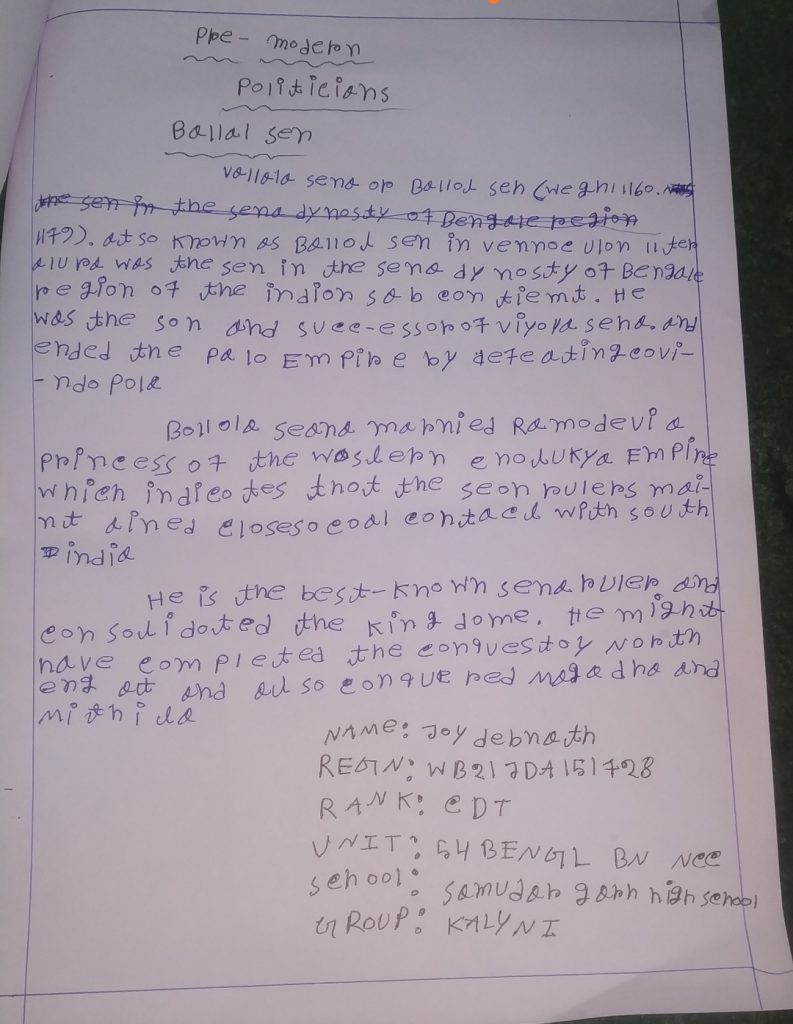 Pre-modern
Politicians
Ballal sen
Vallala sena or Ballal sen (weghi 1160.
the sen in the sena dynosty of Bengale region
1179). atso known as Ballal sen in vennoe ulon liter
alura was the sen in the sena dynosty of Bengale
region of the indion sab contiemt. He
was the son and succ-essor of viyoya sena. and
ended the palo Empire by defeating covi-
-ndo pola
Bollola seana marnied Ramodevi a
princess of the waslern enolukya Empire
which indicotes thot the seon rulers mai-
nt ained closesocoal contacl with south
india
He is the best-known sena ruler and
con solidoted the king dome. He might
have completed the conquestoy North
eng att and also conquered magadha and
mithila
NAME: Joy debnath
REGN: WB21JDA151728
RANK: CDT
UNIT: 54 BENGL BN NCC
school: samudar garh high school
GROUP: KALYNI